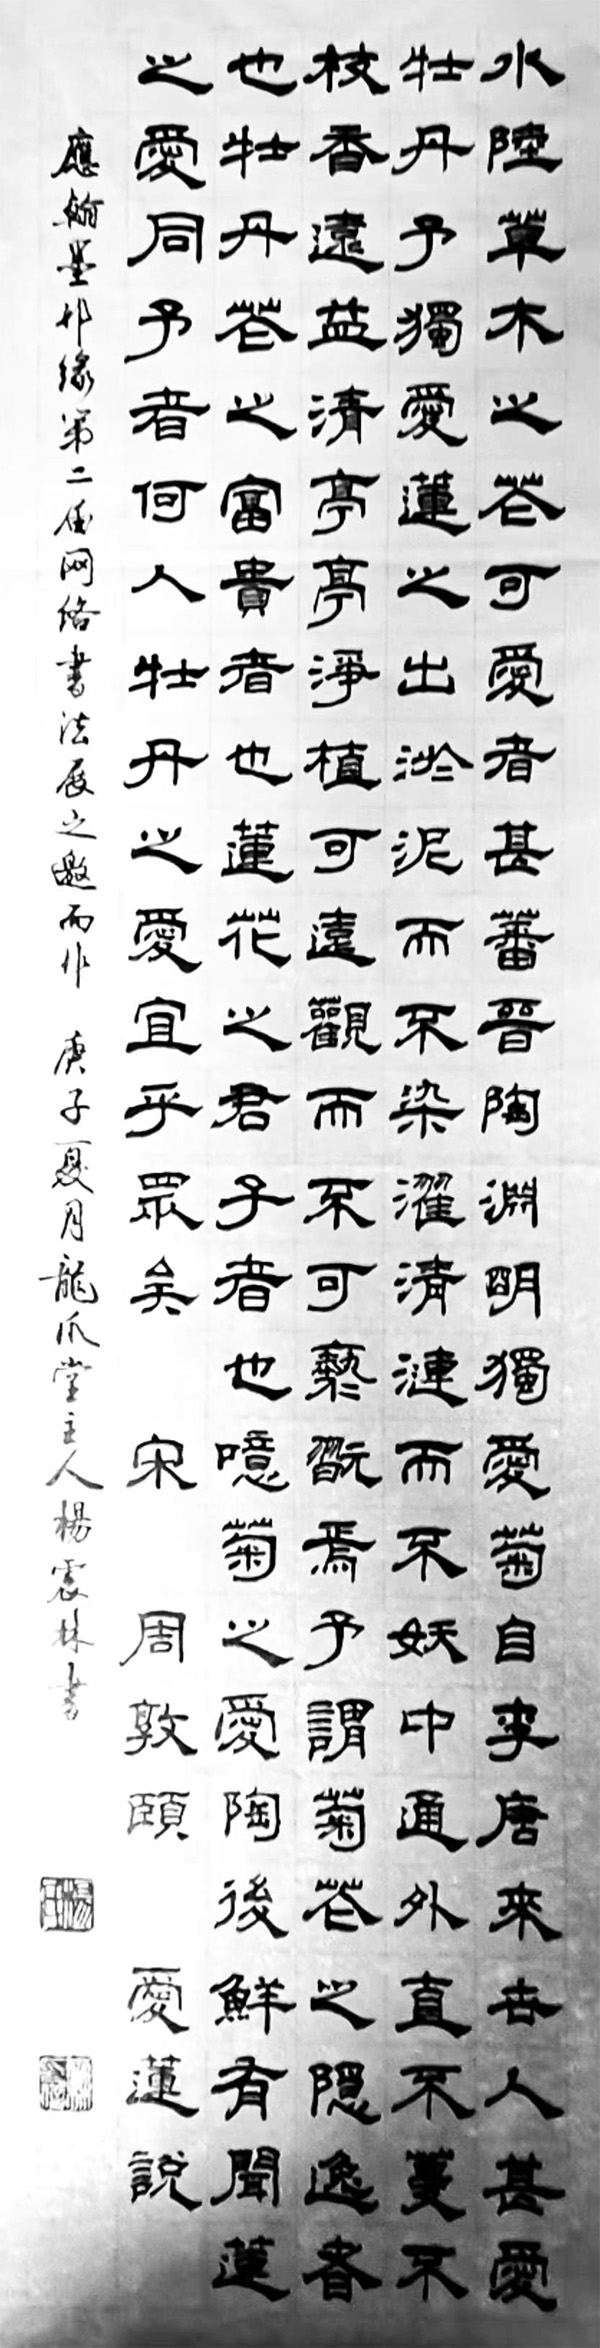 水陸草木之花可愛者甚蕃晉陶淵明獨愛菊自李唐來世人甚愛
牡丹予獨愛蓮之出淤泥而不染濯清漣而不妖中通外直不蔓不
枝香遠益清亭亭淨植可遠觀而不可褻翫焉予謂菊花之隱逸者
也牡丹花之富貴者也蓮花之君子者也噫菊之愛陶後鮮有聞蓮
之愛同予者何人牡丹之愛宜乎眾矣 宋 周敦頤 愛蓮說
應翰墨缘第二届网络書法展之邀而作 庚子夏月龍爪堂主人楊震林書